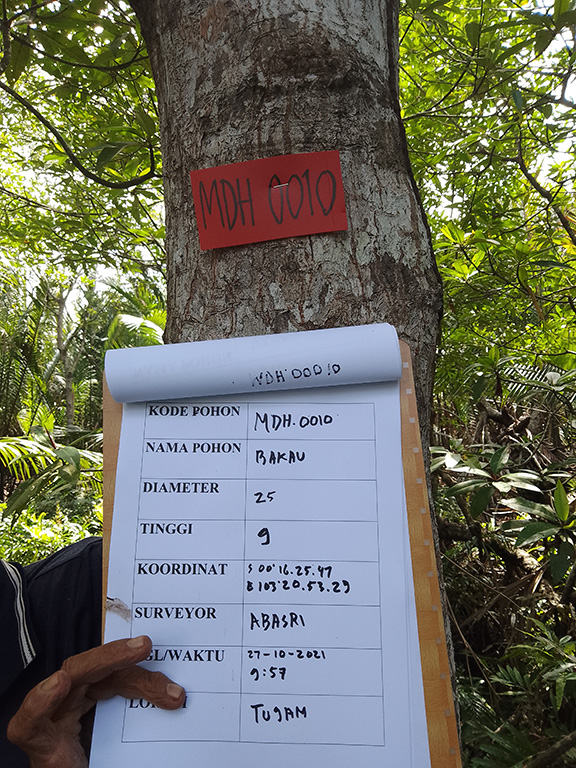 MDH 0010
MDH 00010
KODE POHON MDH.0010
NAMA POHON BAKAU
DIAMETER 25
TINGGI 9
KOORDINAT S 00°16.25.47
E 103°20.53.29
SURVEYOR ABASRI
GL/WAKTU 27-10-2021
9:57
TUGAM